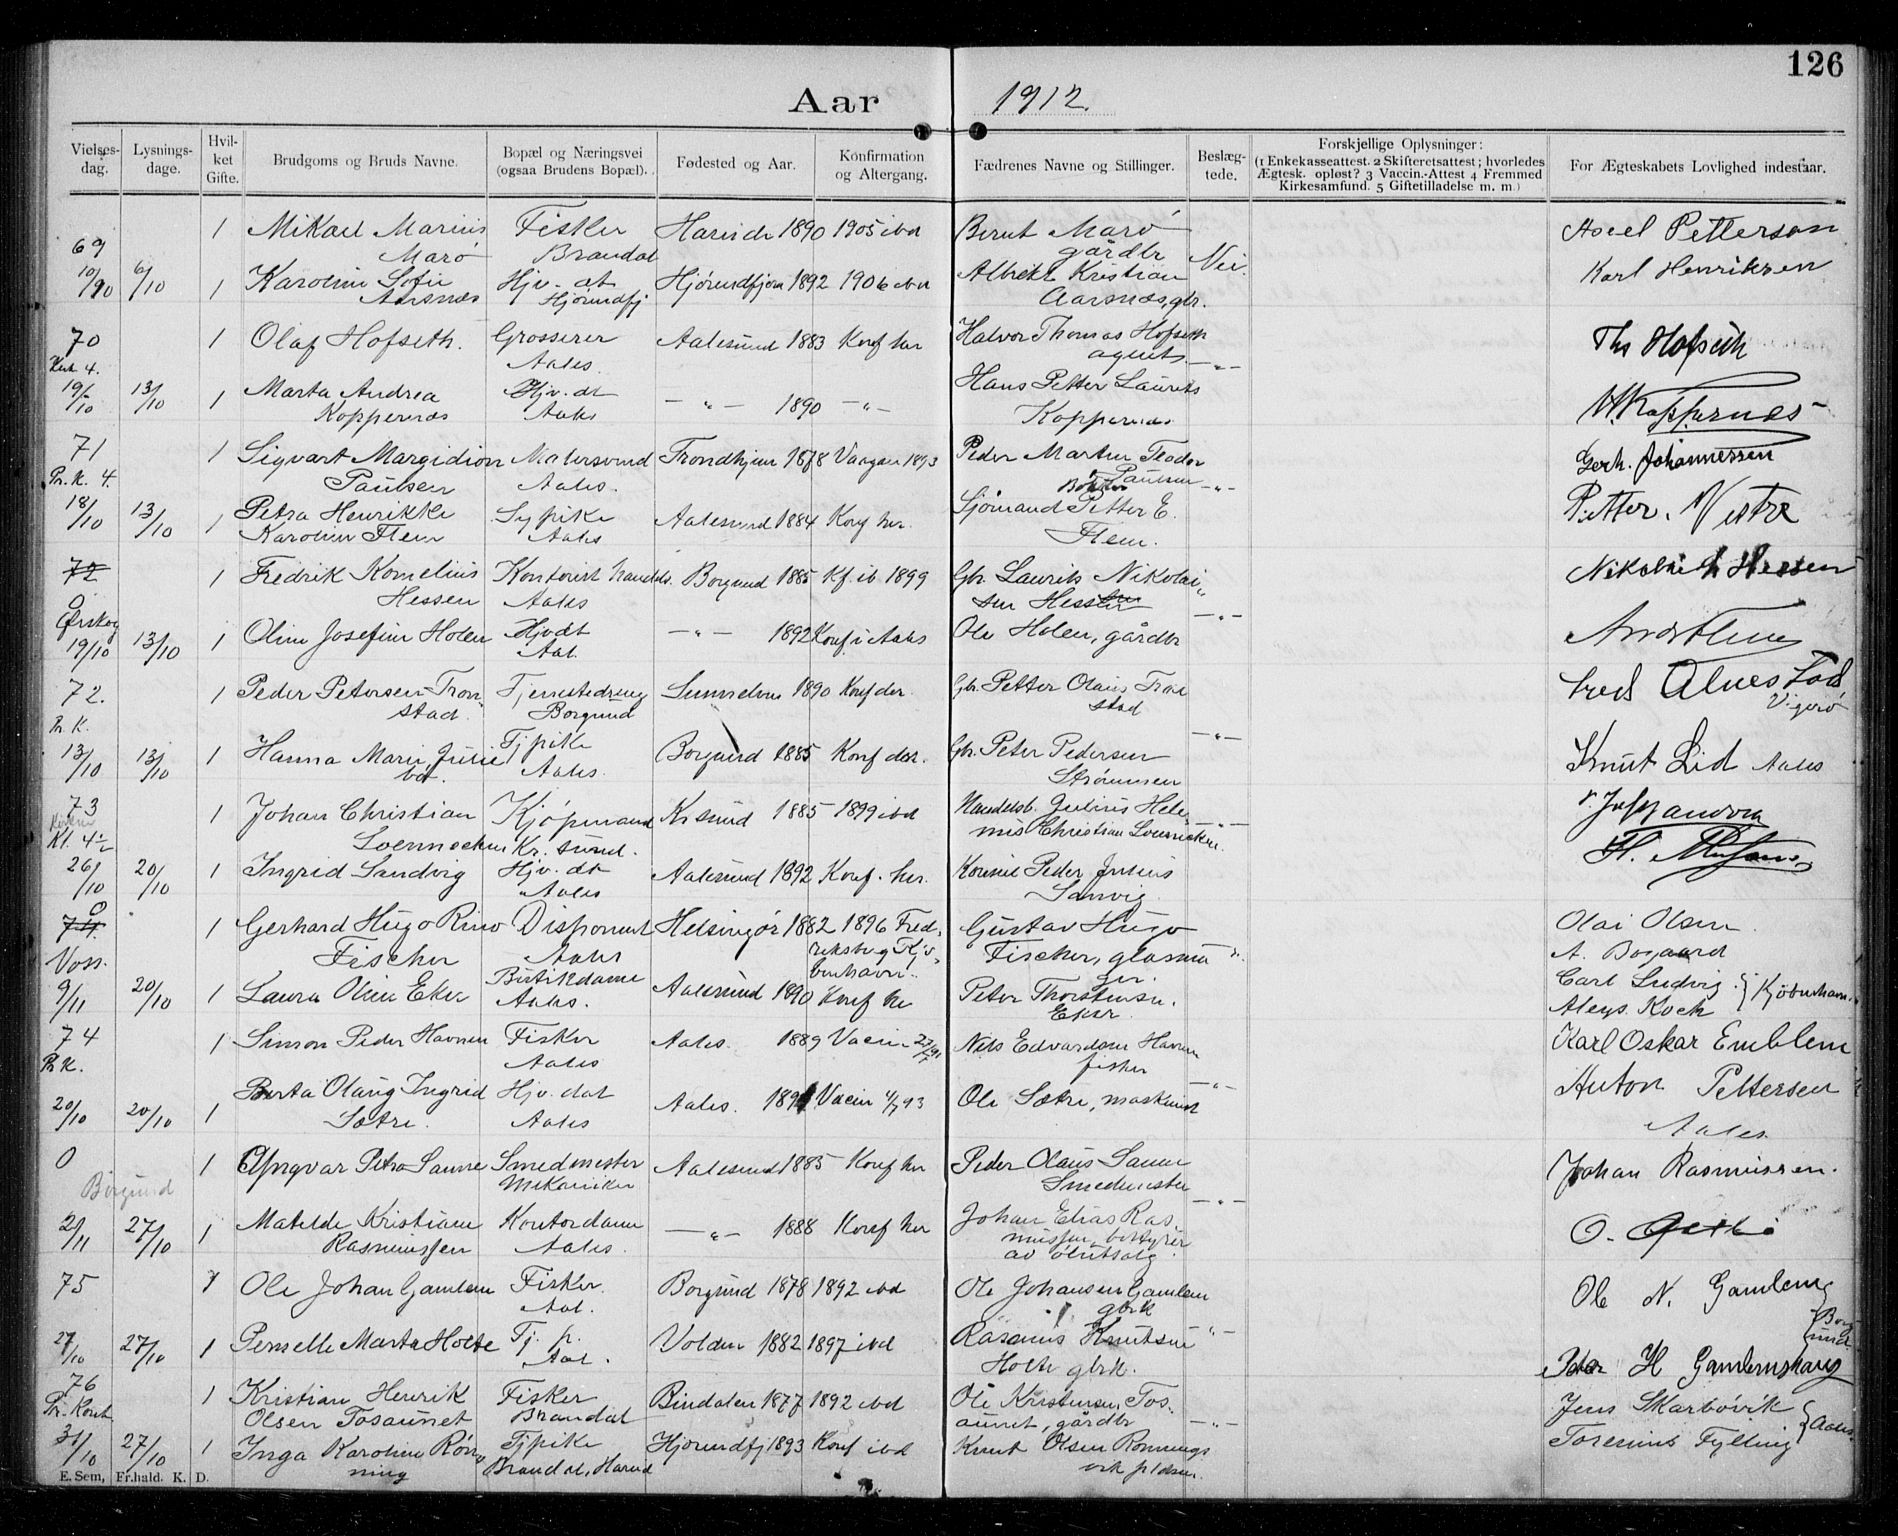 126
Aar 1912.
Vielses-dag. Lysnings-dage. Hvil-ket Gifte. Brudgoms og Bruds Navne. Bopæl og Næringsvei (ogsaa Brudens Bopæl). Fødested og Aar. Konfirmation og Altergang. Fædrenes Navne og Stillinger. Beslæg-tede. Forskjellige Oplysninger: (1 Enkekasseattest. 2 Skifteretsattest; hvorledes Ægtesk. opløst? 3 Vaccin.-Attest 4 Fremmed Kirkesamfund. 5 Giftetilladelse m. m.) For Ægteskabets Lovlighed indestaar.
69 1 Mikael Marius Fisker Hareide 1890 1905 ibd Bernt Marø Axel Petterson
Marø Brandal gårdbr Nei.
10/10 6/10 1 Karoline Sofie Hjv. dt Hjørundfjord 1892 1906 ibd Albrekt Kristian Karl Henriksen
Aarsnæs Hjørundfj Aarsnæs, gbr.
70 1 Olaf Hofseth. Grosserer Aalesund 1883 Konf her Halvor Thomas Hofseth Ths Hofseth
Kl. 4. Aales. agent. -"-
19/10 13/10 1 Marta Andrea Hjv. dt -"- 1890 -"- Hans Petter Laurits
Koppernæs Aales Koppernæs Koppernæs
71 1 Sigvart Margidion Malersvend Trondhjem 1878 Vaagsø 1893 Peder Martin Teodor Gerh. Johannessen
Pr. K. 4. Paulsen Aales. Paulsen -"-
18/10 13/10 1 Petra Henrikke Sypike Aalesund 1884 Konf her. Sjømand Petter E. Petter. Vestre
Karoline Flem Aales Flem.
72 1 Fredrik Kornelius Kontorist handels. Borgund 1885 Kf. ib. 1899 Gbr. Laurits Nikolai Nikolai Hessen
0 Hessen Aales sen Hessen -"-
Ørskog
19/10 13/10 1 Oline Josefine Holen Hjv dt -"- 1892 Konf i Aales Ole Holen, gårdbr
Aal.
72. 1 Peder Petersen Tron- Tjenestedreng Sunnelven 1890 Konf der. Gbr. Petter Olaus Tron Fred Alnes
Pr. K. stad. Borgund stad Vigerø
-"-
13/10 13/10 1 Hanna Marie Julie Tjpike Borgund 1885 Konf der. Gbr. Peter Pedersen Knut Lid Aales
Aales. Strømmen
73 1 Johan Christian Kjøpmand Kr sund 1885 1899 ibd Handelsb. Julius Hele
Kl. 4½ Kr. sund.
26/10 20/10 1 Ingrid Sandvig Hjv. dt Aalesund 1892 Konf. her. Peder Julius
Aales Sanvig
74. 0 1 Gerhard Hugo Rino Disponent Helsingør 1882 1896 Fred- Gustav Hugo Olai Olsen
Voss. Fischer Aales riksberg Kjø- Fischer, glasmæ A. Bogaard
Butikdame benhavn. ger.
9/11 20/10 1 Laura Oline Eker Aales. Aalesund 1890 Konf he Peter Thorstensen. Carl Ludvig } Kjøbenhavn.
Eker Koch
74 1 Simon Peder Havnen Fisker Aales. 1889 Vacin Nils Edvardsen Havnen Karl Oskar Emblem
Pr K. Aales fisker
-"-
20/10 20/10 1 Berta Olaug Ingrid Hjv. dat Aales. Vacin 4/7 93 Ole Sætre, maskinist Anton Pettersen
Sætre. Aales Aales
0 1 Yngvar Petro Sanne Smedmester Aalesund 1885 Konf her Peder Olaus Sanne Johan Rasmussen.
Borgund Mekaniker Smedmester
-"-
2/11 27/10 1 Matilde Kristiane Kontordame -"- 1888 Konf her Johan Elias Ras-
Rasmussen Aales. mussen, bestyrer
av ølutsalg.
75 1 Ole Johan Gamlem Fisker. Borgund 1878 1892 ibd Ole Johansen Gamlem Ole N. Gamlem
Aal. gbrk } Borgund
27/10 27/10 1 Pernelle Marta Holte Tj. p. Volden 1882 1897 ibd Rasmus Knutsen -"-
Aal. Holte gbrk. Peter H Gamlemshaug
76 1 Kristian Henrik Fisker Bindalen 1877 1892 ibd Ole Kristensen Tos- Jens Skarbøvik
Pr. Kont Olsen Tosaunet Brandal aunet, gårdbr -"- } Aales
31/10 27/10 1 Inga Karoline Røn- Tjpike Hjørundfj 1893 Konf ibd Knut Olsen Rønnings Fylling
ning Brandal, Hareid vik
E. Sem, Fr.hald. K. D.